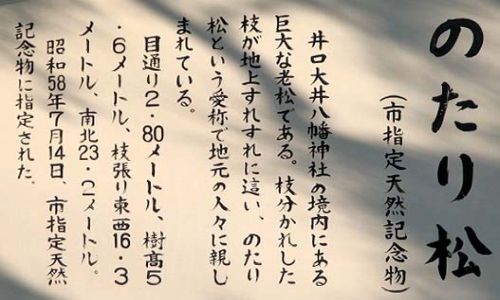 のたり松
(市指定天然記念物)
井口大井八幡神社の境内にある
巨大な老松である。枝分かれした
枝が地上すれすれに這い、のたり
松という愛称で地元の人々に親し
まれている。
目通り2・80メートル、樹高5
・6メートル、枝張り東西16・3
メートル、南北23・2メートル。
昭和58年7月14日、市指定天然
記念物に指定された。